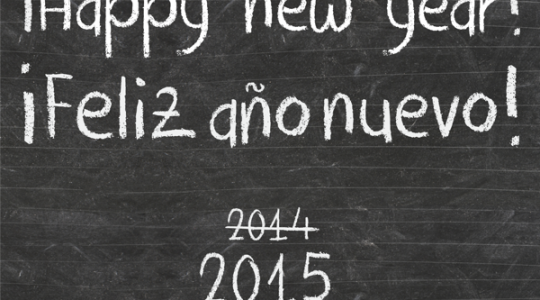 ¡Happy new year!
¡Feliz año nuevo!
2014
2015